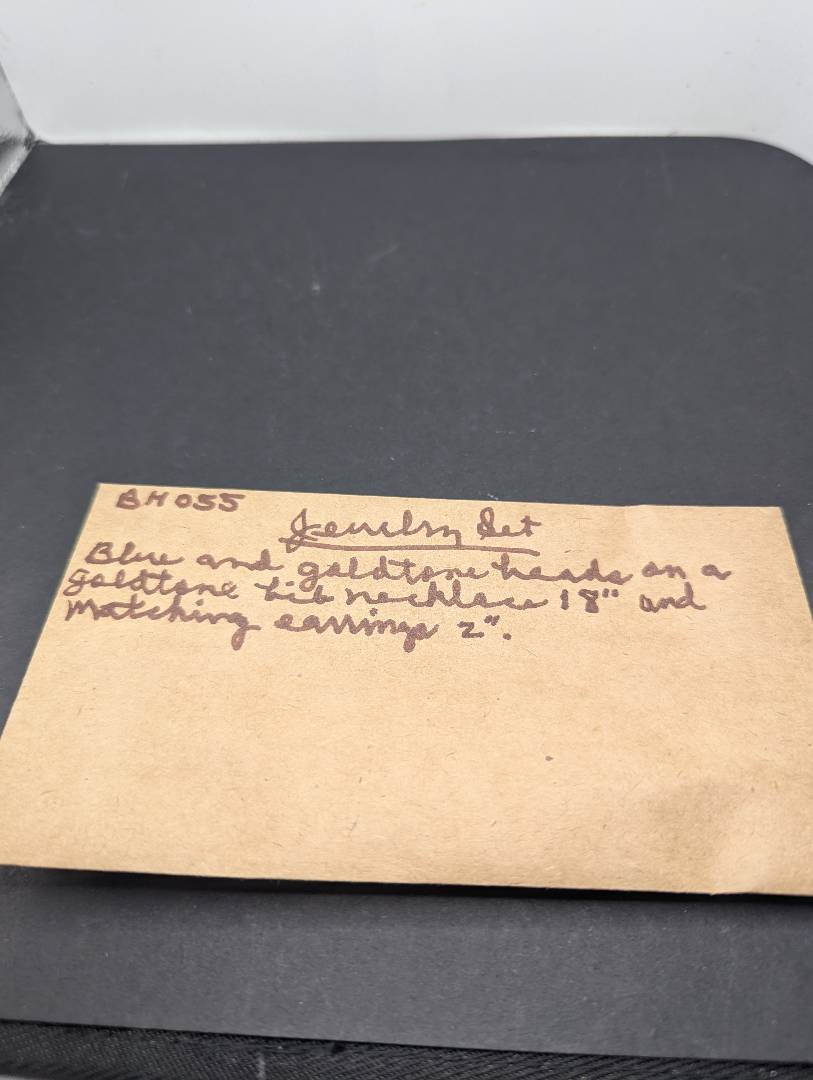 BH055
Jewelry Set
Blue and goldtone beads on a
goldtone bib necklace 18" and
Matching earrings 2".